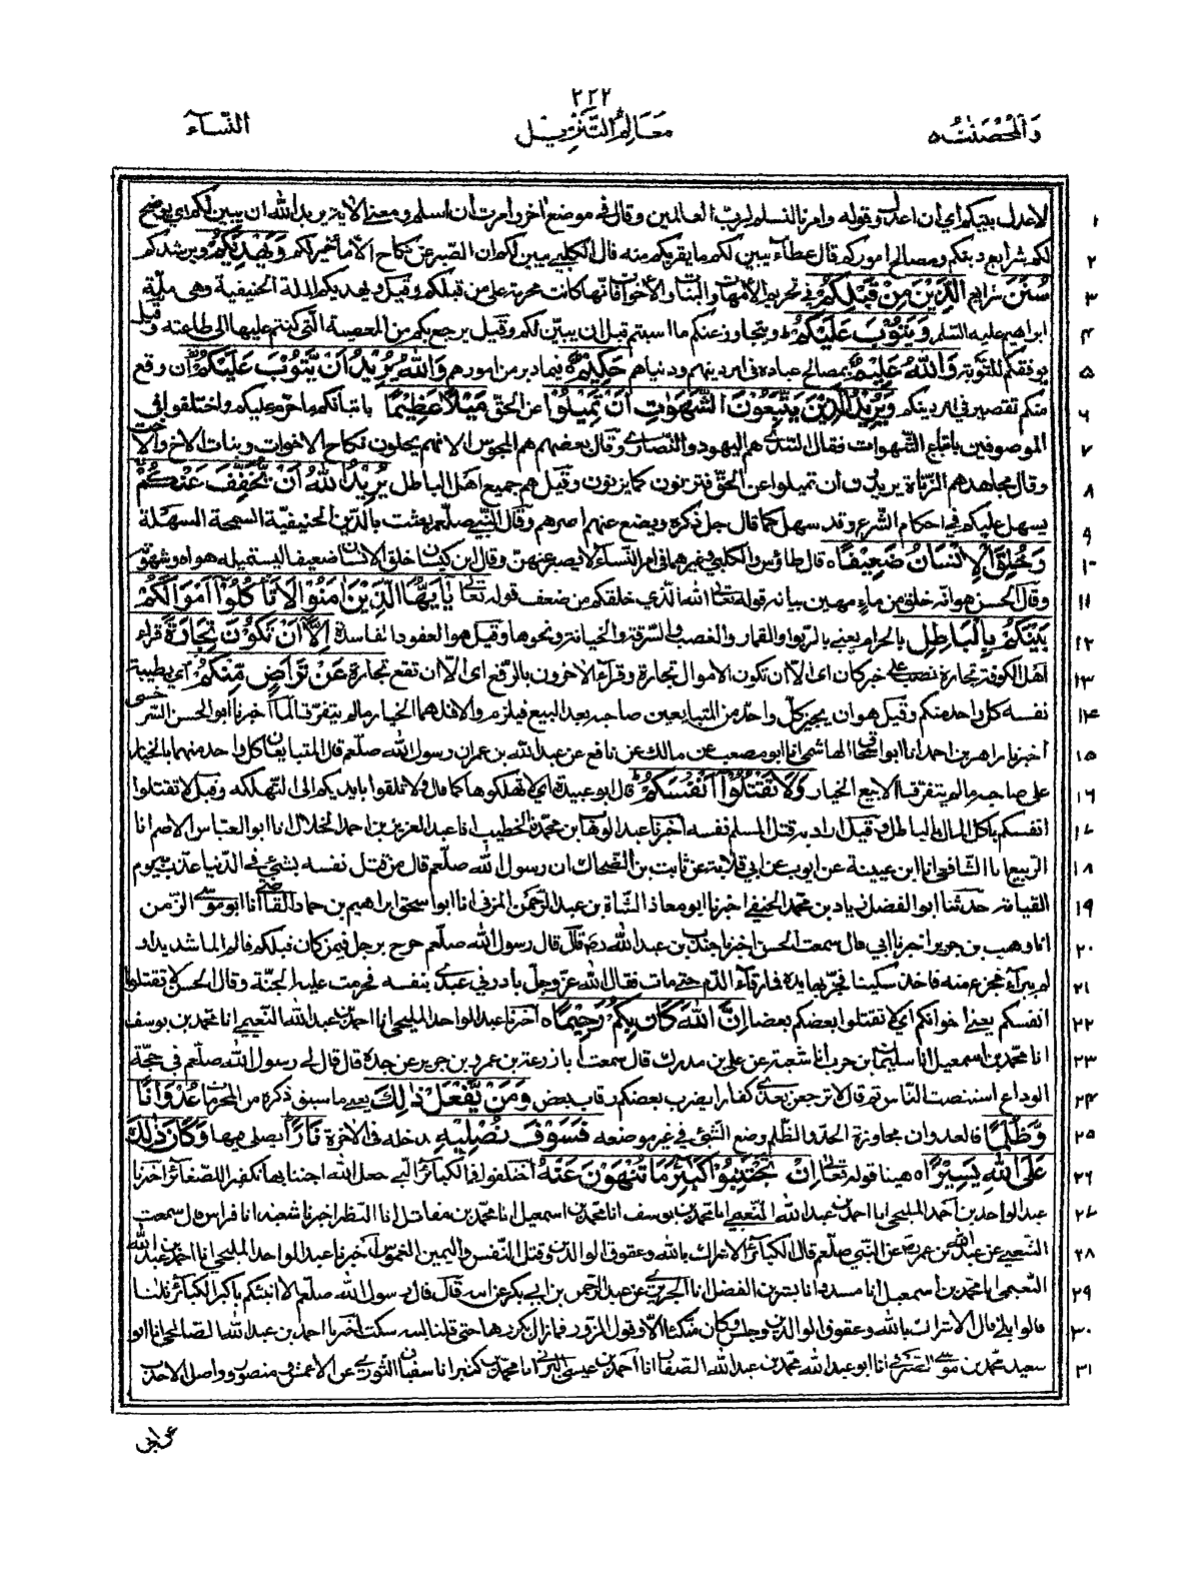 ٢٢٢
والمحصنت ٥
معالم التنزيل
النساء
لاعدل بينكم اي ان اعدل وقوله وامرنا لنسلم لرب العالمين وقال في موضع اخر وامرت ان اسلم ومعنى الاية يريد الله ان يبين لكم اي يوضح ١
لكم شرايع دينكم ومصالح اموركم قال عطاء يبين لكم ما يقربكم منه قال الكلبي يبين لكم ان الصبر عن نكاح الاماء خير لكم وَيَهْدِيَكُمْ ويرشدكم ٢
سُنَنَ شرايع الَّذِيْنَ مِنْ قَبْلِكُمْ في تحريم الامهات والبنات والاخوات فانها كانت محرمة على من قبلكم وقيل ويهديكم الملة الحنيفية وهي ملة ٣
ابراهيم عليه السلم وَيَتُوْبَ عَلَيْكُمْ ويتجاوز عنكم ما اصبتم قبل ان يبين لكم وقيل يرجع بكم من المعصية التي كنتم عليها الى طاعته وقيل ٤
يوفقكم للتوبة وَاللّٰهُ عَلِيْمٌ بمصالح عباده في امر دينهم ودنياهم حَكِيْمٌ فيما دبر من امورهم وَاللّٰهُ يُرِيْدُ اَنْ يَّتُوْبَ عَلَيْكُمْ ان وقع ٥
منكم تقصير في امر دينكم وَيُرِيْدُ الَّذِيْنَ يَتَّبِعُوْنَ الشَّهَوٰتِ اَنْ تَمِيْلُوْا عن الحق مَيْلًا عَظِيْمًا باتيانكم ما حرم عليكم واختلفوا في ٦
الموصوفين باتباع الشهوات فقال السدي هم اليهود والنصارى وقال بعضهم هم المجوس لانهم يحلون نكاح الاخوات وبنات الاخ والاخت ٧
وقال مجاهد هم الزناة يريدون ان تميلوا عن الحق فتزنون كما يزنون وقيل هم جميع اهل الباطل يُرِيْدُ اللّٰهُ اَنْ يُّخَفِّفَ عَنْكُمْ ٨
يسهل عليكم في احكام الشرع وقد سهل كما قال جل ذكره ويضع عنهم اصرهم وقال النبي صلعم بعثت بالدين الحنيفية السمحة السهلة ٩
وَخُلِقَ الْاِنْسَانُ ضَعِيْفًا ٥ قال طاؤس والكلبي وغيرهما في امر النساء لا يصبر عنهن وقال ابن كيسان خلق الانسان ضعيفا اي يستميله هواه وشهوته ١٠
وقال الحسن هو انه خلق من ماء مهين بيانه قوله تعالى الله الذي خلقكم من ضعف قوله تعالى يٰاَيُّهَا الَّذِيْنَ اٰمَنُوْا لَا تَاْكُلُوْٓا اَمْوَالَكُمْ ١١
بَيْنَكُمْ بِالْبَاطِلِ بالحرام يعني بالربوا والقمار والغصب والسرقة والخيانة ونحوها وقيل هو العقود الفاسدة اِلَّآ اَنْ تَكُوْنَ تِجَارَةً قراء ١٢
اهل الكوفة تجارة نصب على خبر كان اي الا ان تكون الاموال تجارة وقراء الاخرون بالرفع اي الا ان تقع تجارة عَنْ تَرَاضٍ مِّنْكُمْ اي بطيبة ١٣
نفسه كل واحد منكم وقيل هو ان يجيز كل واحد من المتبايعين صاحبه بعد البيع فيلزم والا فلهما الخيار ما لم يتفرقا لما اخبرنا ابو الحسن السرخسي ١٤
اخبرنا زاهر بن احمد انا ابو اسحق الهاشمي انا ابو مصعب عن مالك عن نافع عن عبد الله بن عمر ان رسول الله صلعم قال المتبايعان كل واحد منهما بالخيار ١٥
على صاحبه ما لم يتفرقا الا بيع الخيار وَلَا تَقْتُلُوْٓا اَنْفُسَكُمْ قال ابو عبيدة اي لا تهلكوها كما قال ولا تلقوا بايديكم الى التهلكة وقيل لا تقتلوا ١٦
انفسكم باكل المال بالباطل وقيل اراد به قتل المسلم نفسه اخبرنا عبد الوهاب بن محمد الخطيب انا عبد العزيز بن احمد الخلال انا ابو العباس الاصم انا ١٧
الربيع انا الشافعي انا ابن عيينة عن ايوب عن ابي قلابة عن ثابت بن الضحاك ان رسول الله صلعم قال من قتل نفسه بشيء في الدنيا عذب به يوم ١٨
القيامة حدثنا ابو الفضل زياد بن محمد الحنفي اخبرنا ابو معاذ الشاة بن عبد الرحمن المزني انا ابو اسحق ابراهيم بن حماد القاضي انا ابو موسى الزمن ١٩
انا وهب بن جرير اخبرنا ابي قال سمعت الحسن اخبرنا جندب بن عبد الله رضه قال قال رسول الله صلعم خرج برجل فيمن كان قبلكم ٢٠
فجزع منه فاخذ سكينا فحز بها يده فما رقاء الدم حتى مات فقال الله عز وجل بادرني عبدي بنفسه فحرمت عليه الجنة وقال الحسن لا تقتلوا ٢١
انفسكم يعني اخوانكم اي لا تقتلوا بعضكم بعضا اِنَّ اللّٰهَ كَانَ بِكُمْ رَحِيْمًا ٥ اخبرنا عبد الواحد المليحي انا احمد بن عبد الله النعيمي انا محمد بن يوسف ٢٢
انا محمد بن اسمعيل انا سليمان بن حرب انا شعبة عن علي بن مدرك قال سمعت ابا زرعة بن عمرو بن جرير عن جده قال قال لي رسول الله صلعم في حجة ٢٣
الوداع استنصت الناس ثم قال لا ترجعن بعدي كفارا يضرب بعضكم رقاب بعض وَمَنْ يَّفْعَلْ ذٰلِكَ يعني ما سبق ذكره من المحرمات عُدْوَانًا ٢٤
وَّظُلْمًا فالعدوان مجاوزة الحد والظلم وضع الشيء في غير موضعه فَسَوْفَ نُصْلِيْهِ ندخله في الاخرة نَارًا يصلى فيها وَكَانَ ذٰلِكَ ٢٥
عَلَى اللّٰهِ يَسِيْرًا ٥ هينا قوله تعالى اِنْ تَجْتَنِبُوْا كَبَآئِرَ مَا تُنْهَوْنَ عَنْهُ اختلفوا في الكبائر التي جعل الله اجتنابها تكفيرا للصغائر اخبرنا ٢٦
عبد الواحد بن احمد المليحي انا احمد بن عبد الله النعيمي انا محمد بن يوسف انا محمد بن اسمعيل انا محمد بن مقاتل انا النظر اخبرنا شعبة انا فراس قال سمعت ٢٧
الشعبي عن عبد الله بن عمرو عن النبي صلعم قال الكبائر الاشراك بالله وعقوق الوالدين وقتل النفس واليمين الغموس اخبرنا عبد الواحد المليحي انا احمد بن عبد الله ٢٨
النعيمي انا محمد بن اسمعيل انا مسدد انا بشر بن الفضل انا الجريري عن عبد الرحمن بن ابي بكر عن ابيه قال قال رسول الله صلعم الا انبئكم باكبر الكبائر ثلثا ٢٩
قالوا بلى قال الاشراك بالله وعقوق الوالدين وجلس وكان متكئا الا وقول الزور فما زال يكررها حتى قلنا ليته سكت اخبرنا احمد بن عبد الله الصالحي انا ابو ٣٠
سعيد محمد بن موسى الصيرفي انا ابو عبد الله محمد بن عبد الله الصفار انا احمد بن عيسى البرتي انا محمد بن كثير انا سفيان الثوري عن الاعمش ومنصور وواصل الاحدب ٣١
عن ابي